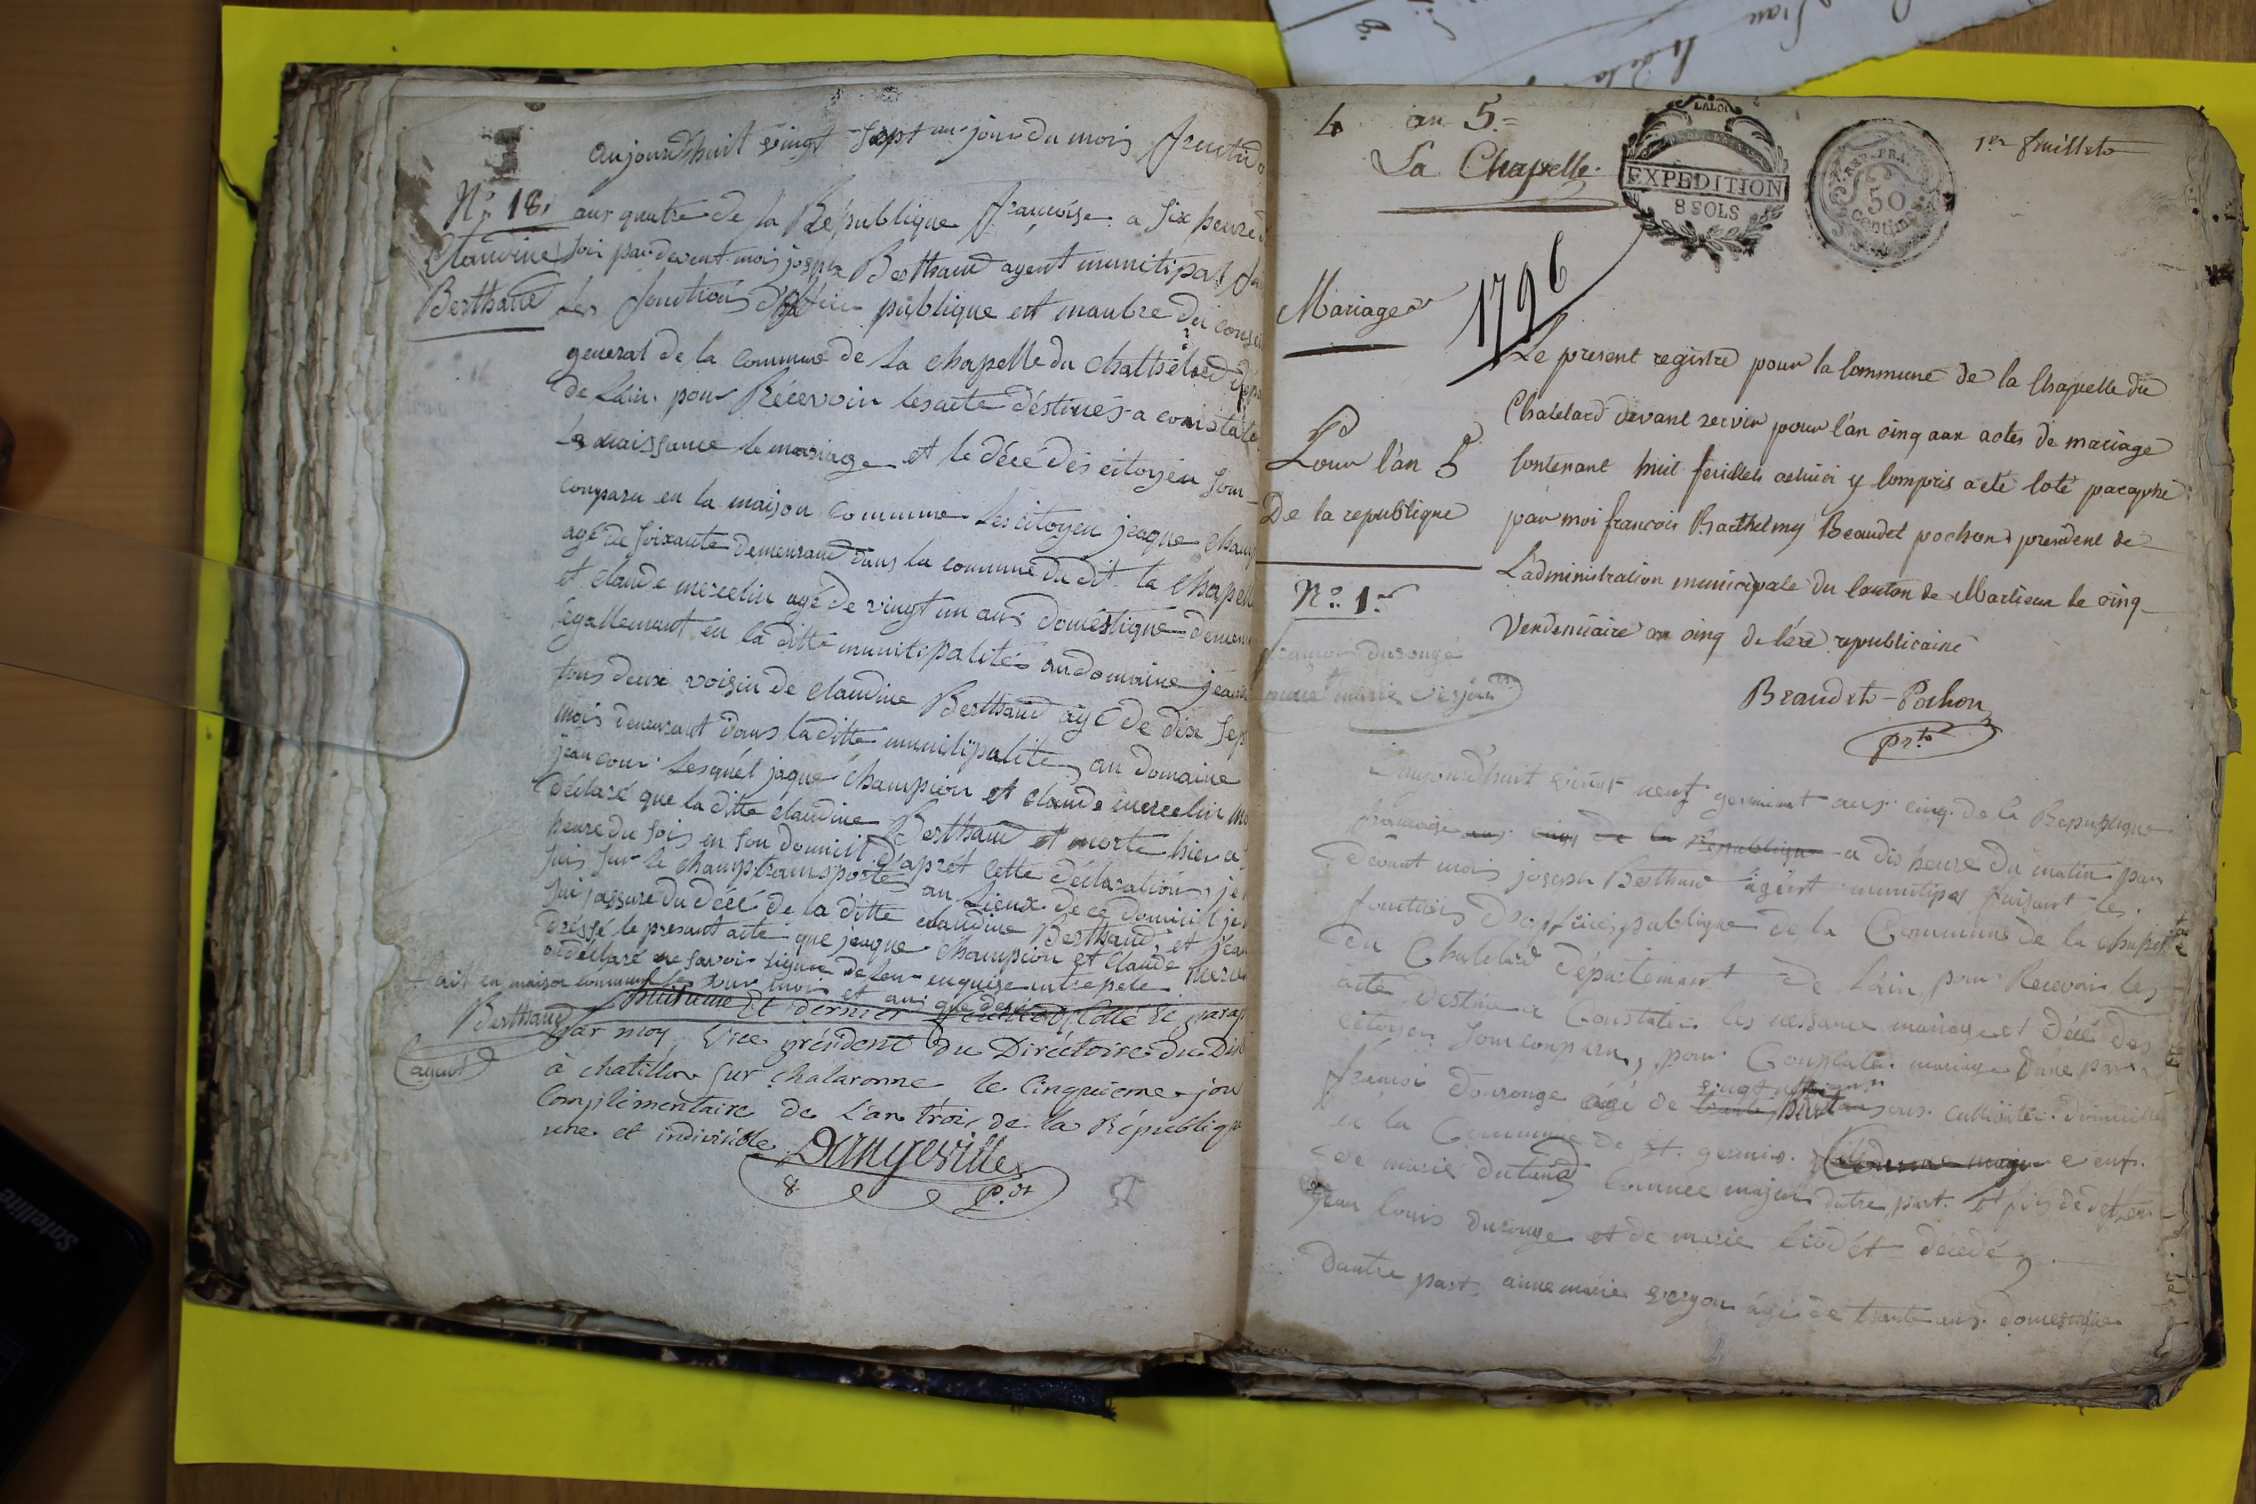 aujourdhuit vingt Sept me jour du mois fructid
N.º 18. ans quatre de la République françoise a six heure d
Claudine soir par devent mois joseph Berthaud agent municipal
Berthaud les fonctions d'officie publique et manbre du consei
general de la commune de la chapelle du Chattelard depa
de Lain. pour Récevoir les acte déstinés a conistate
la naissance le mariage et le décé des citoyen son
comparu en la maison commune les citoyen jeaque Cham
agé de soixante demeurant dans la commune du dit la Chapell
et claude mercelin agé de vingt un ans domestique demeu
Egallement en la ditte municipalités au domaine jean
tous deux voisin de Claudine Berthaud agé de dix Sept
mois demeurant dans la ditte municipalité, au domaine
jean cour. Lesquel jaque Champion et claude mercelin mo
déclaré que la ditte claudine Berthaud et morte hier a
heure du soir en son domicil d'apret cette déclaration, je
suis sur le champ transporté au Lieux de ce domicil je
sui jassuré du décé de la ditte claudine Berthaud, et
dréssé le presant acte que jeaque Champion et Claude merce
déclaré ne savoir signer de leur enquise
fait en maison commune les jour mois et an que desu
Berthaud
agent
huitieme Et dernier feuillet Cotté & parap
par moy Vice président du Diréctoire du Dis
à chatillon sur chalaronne le Cinquieme jou
Complémentaire de L'an trois de la Républiq
une et indivisible Dangeville
8. p.dt
4 an 5.=
La Chapelle.
LA LOI
EXPEDITION
8 SOLS
REP. FRA.
50
Centimes
1er feuillet
Mariages
1796
Le present registre pour la Commune de la Chapelle du
Chatelard devant servir pour l'an cinq aux actes de mariage
Pour l'an 5 Contenant huit feuillets celuici y Compris a été coté paraphé
De la republique par moi francois Barthelmy Beaudet pochon president de
L'administration municipale du Canton de Marlieux le cinq
Vendemiaire an cinq de l'ére republicaine
N.º 1.er
Beaudet-Pochon
pr.t
françois durouge
anne marie Verjon
aujourdhuit vingt neuf germinal ans cinq de la Republique
françoise ans cinq de la Republique a dis heure du matin par
devant mois joseph Berthaud agent municipal faisant les
fonctions d'officie publique de la Commune de la chapell
du Chatelard Département de Lain, pour Recevoir les
acte destine a Constater les nessance mariage et décé des
citoyen son conparu, pour Conplate mariage dune part
francoi Durouge agé de vingt sans cultivateur domicilie
en la Commune de St. germin.
de marie Dutand
jean louis durouge et de marie décédé
Dautre part anne marie verjon agé de trante ans domestique